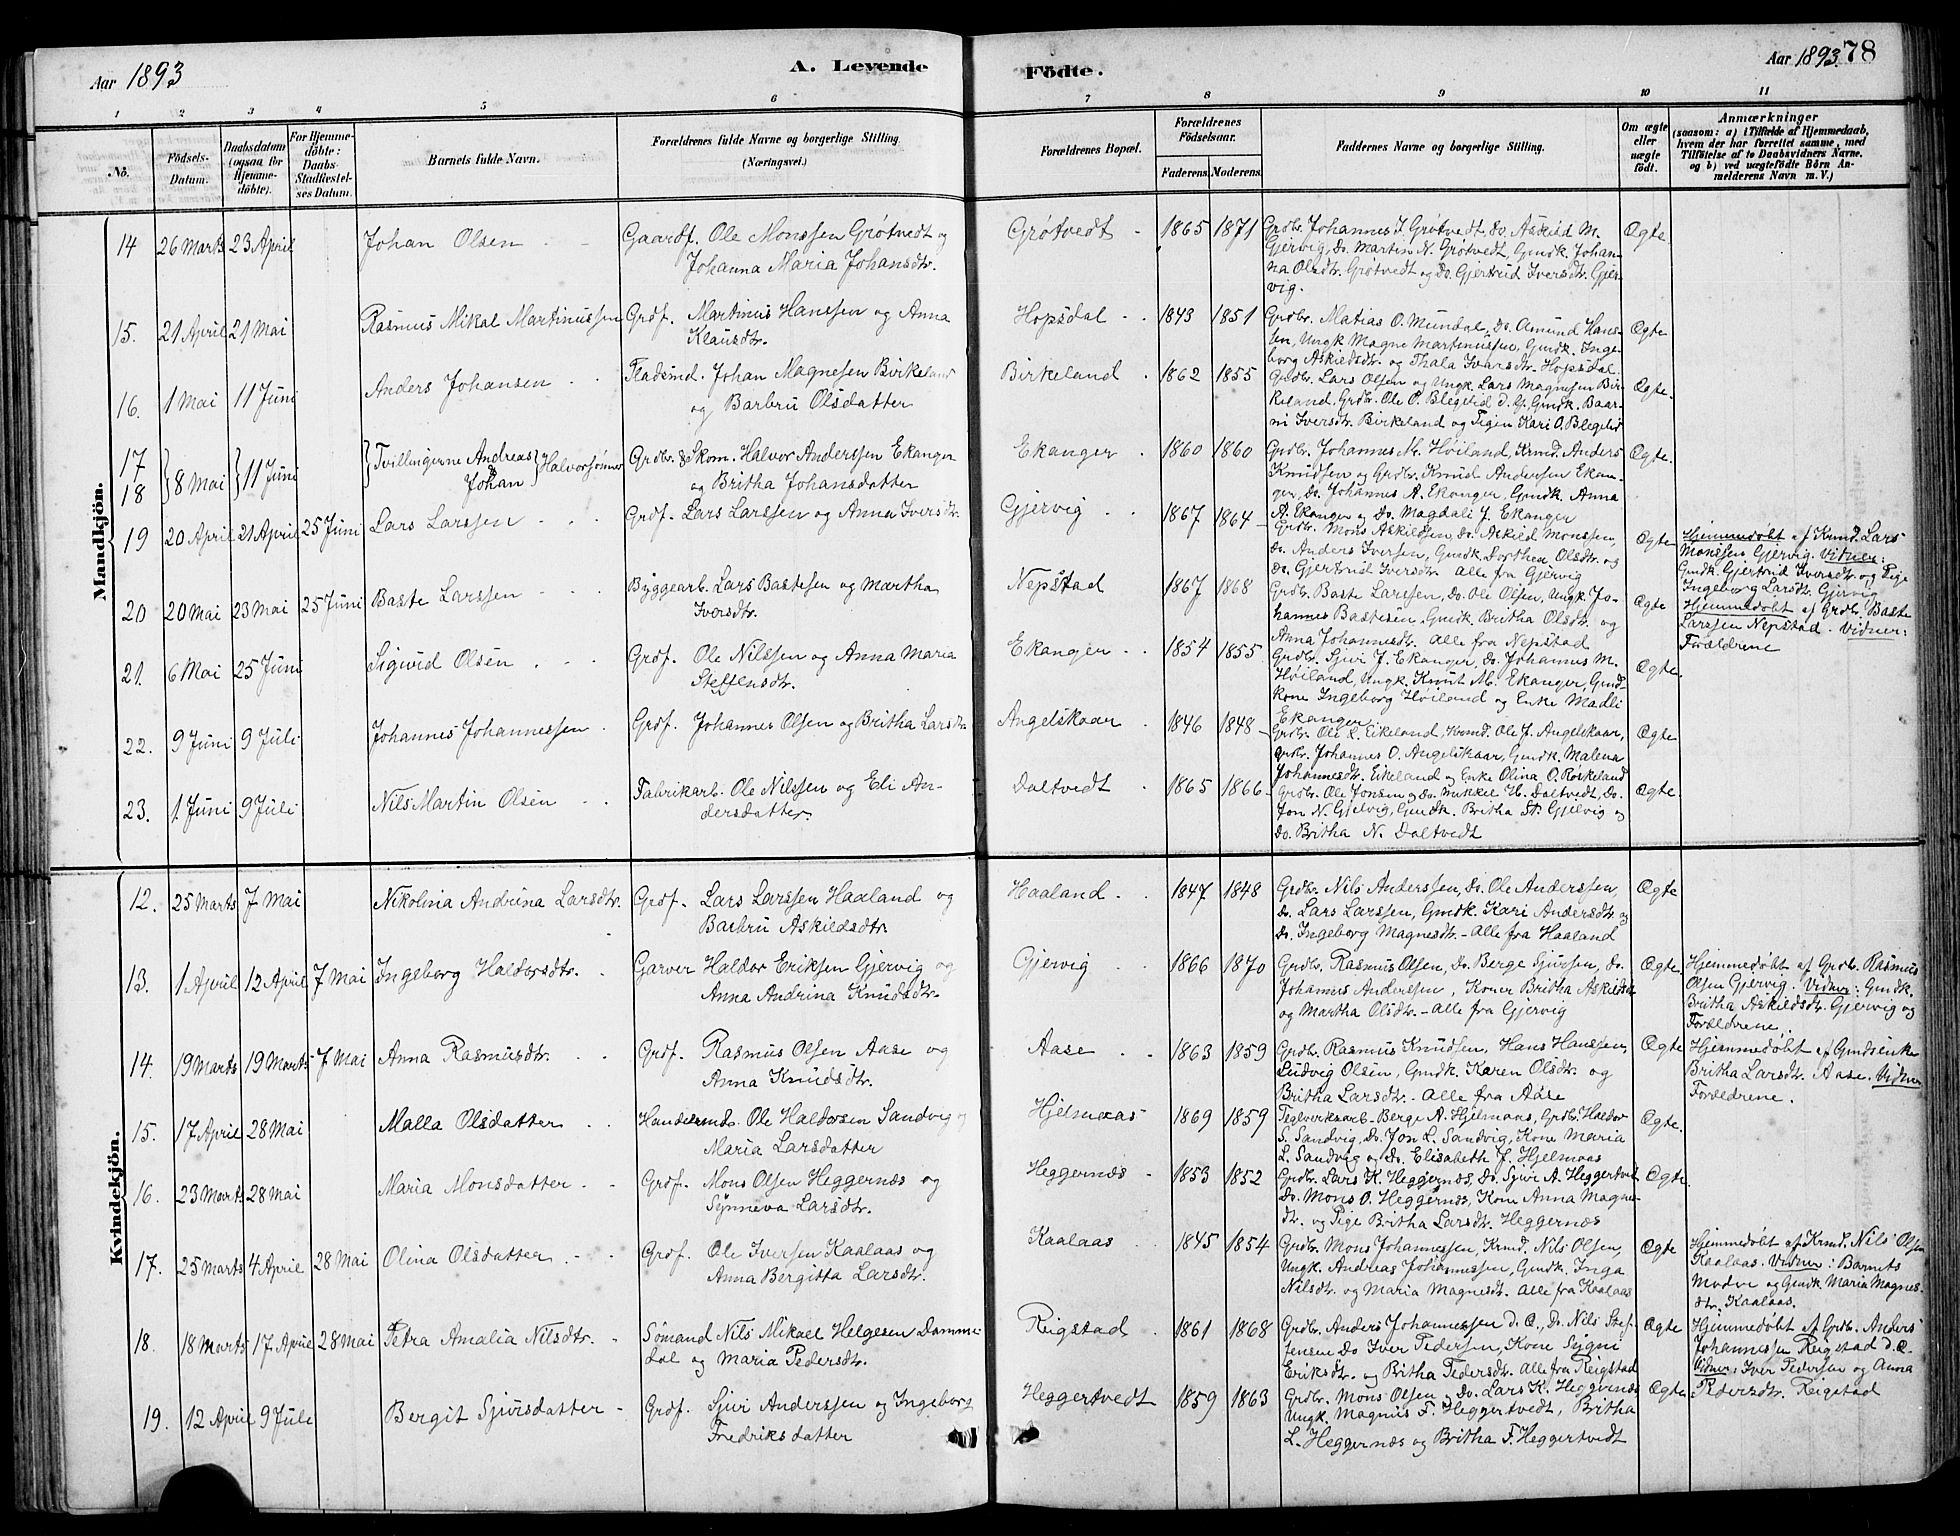 Aar 1893
A. Levende
Födte.
Aar 1893.
78
1
2
3
4
5
6
7
8
9
10
11
No.
Födsels-
Datum.
Daabsdatum
(ogsaa for
Hjemme-
döbte).
For Hjemme-
döbte:
Daabs-
Stadfæstel-
ses Datum.
Barnets fulde Navn.
Forældrenes fulde Navne og borgerlige Stilling
(Næringsvei.)
Forældrenes Bopæl.
Forældrenes
Födselsaar.
Faderens.
Moderens.
Faddernes Navne og borgerlige Stilling.
Om ægte
eller
uægte
födt.
Anmærkninger
(saasom: a) i Tilfælde af Hjemmedaab,
hvem der har forrettet samme, med
Tilföielse af to Daabsvidners Navne,
og b) ved uægtefödte Börn An-
melderens Navn m. V.)
Mandkjön.
14 26 Marts 23 April Johan Olsen
Gaardf. Ole Monssen Grøtvedt og
Johanna Maria Johansdtr.
Grøtvedt 1865 1871
Grdbr. Johannes I. Grøtvedt, Do. Askild M.
Gjervig, Do. Martin N. Grøtvedt, Gmdk. Johan-
na Olsdtr. Grøtvedt og Do. Gjertrud Iversdtr. Gjer-
vig.
Ægte.
15. 21 April 21 Mai Rasmus Mikal Martinussen
Grdf. Martinus Hanssen og Anna
Klausdtr.
Hopsdal 1843 1851
Grdbr. Matias O. Mundal, Do. Amund Hans-
sen, Ungk. Magne Martinussen, Gmdk. Inge-
borg Askildsdtr. og Thala Ivarsdtr. Hopsdal.
Ægte
16. 1 Mai 11 Juni Anders Johansen
Pladsmd. Johan Magnesen Birkeland
og Barbru Olsdatter
Birkeland 1862 1855
Grdbr. Lars Olsen og Ungk. Lars Magnesen Bir-
keland, Grdbr. Ole O. Blegslid d. y., Gmdk. Baar-
ni Iversdtr. Birkeland og Pigen Kari O. Blegslid
Ægte.
17
18 8 Mai 11 Juni Tvillingerne Andreas
& Johan Halvorsønner
Grdbr. & Skom. Halvor Anderssen Ekanger
og Britha Johansdatter
Ekanger 1860 1860
Grdbr. Johannes M. Høiland, Krmd. Anders
Knudsen og Grdbr. Knud Andersen Ekan-
ger, Do. Johannes A. Ekanger, Gmdk. Anna
A. Ekanger og Do. Magdali J. Ekanger
Ægte.
19 20 April 21 April 25 Juni Lars Larssen
Grdf. Lars Larssen og Anna Iversdtr.
Gjervig 1867 1864
Grdbr. Mons Askildsen, Do. Askild Monssen,
Do. Anders Iversen, Gmdk. Dorthea Olsdtr. og
Do. Gjertrud Iversdtr. Alle fra Gjervig
Ægte
Hjemmedøbt af Krmd. Lars
Monssen Gjervig. Vidner:
Gmdk. Gjertrud Iversdtr. og Pige
Ingeborg Larsdtr. Gjervig
20 20 Mai 23 Mai 25 Juni Baste Larssen
Byggearb. Lars Bastesen og Martha
Iversdtr.
Nepstad 1867 1868
Grdbr. Baste Larssen, Do. Ole Olsen, Ungk. Jo-
hannes Bastesen, Gmdk. Britha Olsdtr. og
Anna Johannesdtr. Alle fra Nepstad
Ægte
Hjemmedøbt af Grdbr. Baste
Larssen Nepstad. Vidner:
Forældrene
21. 6 Mai 25 Juni Sigurd Olsen
Grdf. Ole Nilssen og Anna Maria
Steffensdtr.
Ekanger 1854 1855
Grdbr. Sjur J. Ekanger, Do. Johannes M.
Høiland, Ungk. Knut M. Ekanger, Gmd-
kone Ingeborg Høiland og Enke Madli
Ekanger.
Ægte.
22. 9 Juni 9 Juli Johannes Johannessen
Grdf. Johannes Olsen og Britha Larsdtr.
Angelskaar 1846 1848
Grdbr. Ole L. Eikeland, Krmd. Ole J. Angelskaar,
Grdbr. Johannes O. Angelskaar, Gmdk. Malena
Johannesdtr. Eikeland og Enke Olina O. Røskeland
Ægte
23. 1. Juni 9 Juli Nils Martin Olsen
Fabrikarb. Ole Nilssen og Eli An-
dersdatter
Daltvedt 1865 1866
Grdbr. Ole Jonsen og Do. Mikkel H. Daltvedt, Do.
Jon N. Gjelvig, Gmdk. Britha St. Gjelvig og
Do. Britha N. Daltvedt
Ægte.
Kvindekjön.
12. 25 Marts 7 Mai Nikolina Andrina Larsdtr.
Grdf. Lars Larssen Haaland og
Barbru Askildsdtr.
Haaland 1847 1848
Grdbr. Nils Anderssen, Do. Ole Anderssen,
Do. Lars Larssen, Gmdk. Kari Andersdtr og
Do. Ingeborg Magnesdtr. - Alle fra Haaland
Ægte
13. 1 April 12 April 7 Mai Ingeborg Haldorsdtr.
Garver Haldor Eriksen Gjervig og
Anna Andrina Knudsdtr.
Gjervig 1866 1870
Grdbr. Rasmus Olsen, Do. Berge Sjursen, Do.
Johannes Anderssen, Koner Britha Askildsdr
og Martha Olsdtr. - Alle fra Gjervig
Ægte.
Hjemmedøbt af Grdb. Rasmus
Olsen Gjervig. Vidner: Gmdk.
Britha Askildsdtr. Gjervig og
Forældrene.
14. 19 Marts 19 Marts 7 Mai Anna Rasmusdtr.
Grdf. Rasmus Olsen Aase og
Anna Knudsdtr.
Aase 1863 1859
Grdbr. Rasmus Knudsen, Hans Hanssen,
Ludvig Olsen, Gmdk. Karen Olsdtr. og
Britha Larsdtr. - Alle fra Aase
Ægte
Hjemmedøbt af Gmdsenke
Britha Larsdtr. Aase. Vidner
Forældrene.
15. 17 April 28 Mai Malla Olsdatter
Handelsmd. Ole Haldorsen Sandvig og
Maria Larsdatter
Hjelmaas 1869 1859
Teglverksarb. Berge A. Hjelmaas, Grdbr. Haldor
S. Sandvig, Do. Jon L. Sandvig, Kone Maria
L. Sandvig og Do. Elisabeth J. Hjelmaas
Ægte.
16. 23 Marts 28 Mai Maria Monsdatter
Grdf. Mons Olsen Heggernæs og
Synneva Larsdtr.
Heggernæs 1853 1852
Grdbr. Lars K. Heggernæs, Do. Sjur A. Heggertvedt
Do. Mons O. Heggernæs, Kone Anna Magne-
dtr. og Pige Britha Larsdtr. Heggernæs
Ægte.
17. 25 Marts 4 April 28 Mai Olina Olsdatter
Grdf. Ole Iversen Kaalaas og
Anna Bergitta Larsdtr.
Kaalaas 1845 1854
Grdbr. Mons Johannessen, Krmd. Nils Olsen,
Ungk. Andreas Johannessen, Gmdk. Inga
Nilsdtr. og Maria Magnesdtr. Alle fra Kaalaas
Ægte
Hjemmedøbt af Krmd. Nils Olsen
Kaalaas. Vidner: Barnets
Moder og Gmdk. Maria Magnes-
dtr. Kaalaas.
18. 18 Marts 17 April 28 Mai Petra Amalia Nilsdtr.
Sømand Nils Mikael Helgesen Damme-
dal og Maria Pedersdtr.
Reigstad 1861 1868
Grdbr. Anders Johannessen d. e., Do. Nils Stef-
fensen Do Iver Pedersen, Kone Sygni
Eriksdtr. og Britha Pedersdtr. Alle fra Reigstad
Ægte
Hjemmedøbt af Grdbr. Anders
Johannessen Reigstad d. e.
Vidner: Iver Pedersen og Anna
Reigstad
19. 12 April 9 Juli Bergit Sjursdatter
Grdf. Sjur Anderssen og Ingeborg
Fredriksdatter
Heggertvedt 1859 1863
Grdbr. Mons Olsen og Do. Lars K. Heggernæs
Ungk. Magnus F. Heggertvedt, Britha
L. Heggernæs og Britha F. Heggertvedt
Ægte